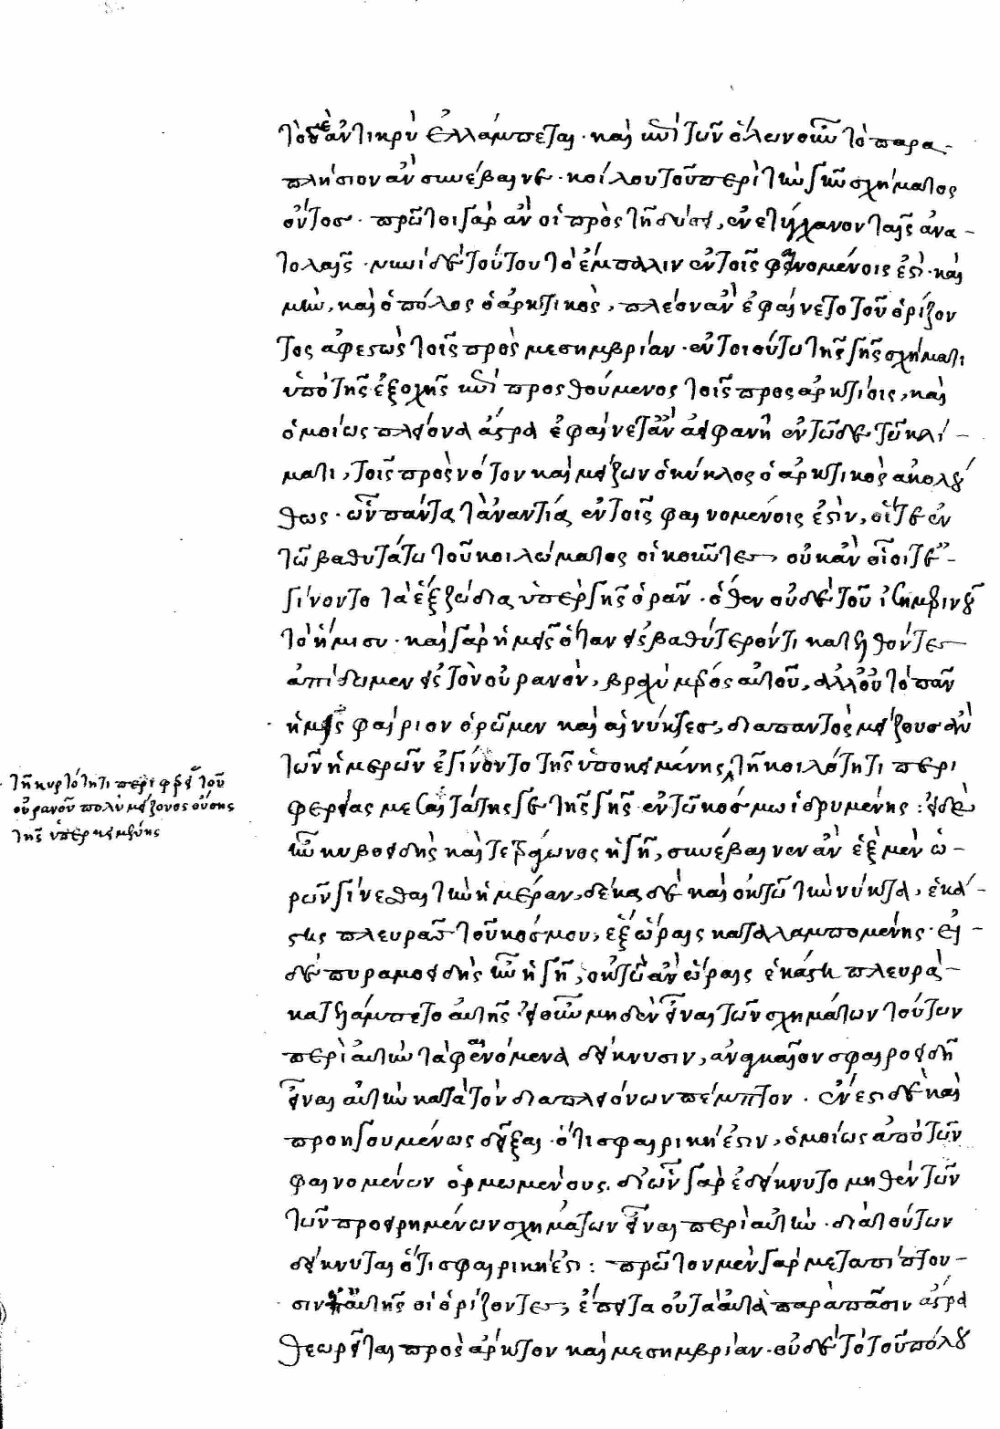 τὸ δὲ ἀντικρὺ ἐλλάμπεται · καὶ ἐπὶ τῶν ὅλων οὖν τὸ παρα-
πλήσιον ἂν συνέβαινε · κοίλου τοῦ περὶ τὴν γῆν σχήματος
ὄντος · πρῶτοι γὰρ ἂν οἱ πρὸς τῇ δύσει, ἐνετύγχανον ταῖς ἀνα-
τολαῖς · νυνὶ δὲ τούτου τὸ ἔμπαλιν ἐν τοῖς φαινομένοις ἐστί · καὶ
μὴν, καὶ ὁ πόλος ὁ ἀρκτικὸς, πλέον ἂν ἐφαίνετο τοῦ ὁρίζον
τος ἀφεστὼς τοῖς πρὸς μεσημβρίαν · ἐν τοιούτω τῆς γῆς σχήματι
ὑπὸ τῆς ἐξοχῆς ἐπιπροσθούμενος τοῖς πρὸς ἀρκτίοις, καὶ
ὁμοίως πλείονα ἄστρα ἐφαίνετ' ἂν ἀειφανῆ ἐν τῶδε τῶ κλί-
ματι, τοῖς πρὸς νότον καὶ μείζων ὁ κύκλος ὁ ἀρκτικὸς ἀκολού
θως · ὧν πάντα τἀναντία ἐν τοῖς φαινομένοις ἐστὶν, οἵ τε ἐν
τῶ βαθυτάτω τοῦ κοιλώματος οἰκοῦντες, οὐκ ἂν οἷοί τε ἐ-
γίνοντο τὰ ἓξ ζώδια ὑπὲρ γῆς ὁρᾶν · ὅθεν οὐδὲ τοῦ ἰσημερινοῦ
τὸ ἥμισυ · καὶ γὰρ ἡμεῖς ὅταν εἰς βαθύτερόν τι κατελθόντες
ἀπίδωμεν εἰς τὸν οὐρανὸν, βραχὺ μέρος αὐτοῦ, ἀλλ' οὐ τὸ πᾶν
ἡμισφαίριον ὁρῶμεν καὶ αἱ νύκτες, διαπαντὸς μείζους ἂν
τῶν ἡμερῶν ἐγίνοντο τῆς ὑποκειμένης, τῇ κοιλότητι περι
φερείας μεσαιτάτης τε τῆς γῆς ἐν τῶ κόσμω ἱδρυμένης : εἰ δὲ
ἦν κυβοειδὴς καὶ τετράγωνος ἡ γῆ, συνέβαινεν ἂν ἓξ μὲν ὡ-
ρῶν γίνεσθαι τὴν ἡμέραν, δέκα δὲ καὶ ὀκτὼ τὴν νύκτα, ἑκά-
στης πλευρᾶς τοῦ κόσμου, ἓξ ὥραις καταλαμπομένης · εἰ
δὲ πυραμοειδὴς ἦν ἡ γῆ, ὀκτὼ ἂν ὥραις ἑκάστη πλευρὰ
κατελάμπετο αὐτῆς · εἰ οὖν μηδὲν εἶναι τῶν σχημάτων τούτων
περὶ αὐτὴν τὰ φαινόμενα δείκνυσιν, ἀναγκαῖον σφαιροειδῆ
εἶναι αὐτὴν κατὰ τὸν διὰ πλειόνων πέμπτον · ἔνεστι δὲ καὶ
προηγουμένως δεῖξαι · ὅτι σφαιρική ἐστιν, ὁμοίως ἀπὸ τῶν
φαινομένων ὁρμωμένους. δι' ὧν γὰρ ἐδείκνυτο μηθὲν τῶν
τῶν προειρημένων σχημάτων εἶναι περὶ αὐτὴν · διὰ τούτων
δείκνυται ὅτι σφαιρική ἐστι : πρῶτον μὲν γὰρ μεταπίπτου-
σιν αὐτῆς οἱ ὁρίζοντες, ἔπειτα οὐ ταὐτὰ παρὰ πᾶσιν ἄστρα
θεωρεῖται πρὸς ἄρκτον καὶ μεσημβρίαν · οὐδὲ τὸ τοῦ πόλου
τῇ κυρτότητι περιφερείᾳ τοῦ
οὐρανοῦ πολὺ μείζονος οὔσης
τῆς ὑπερκειμένης